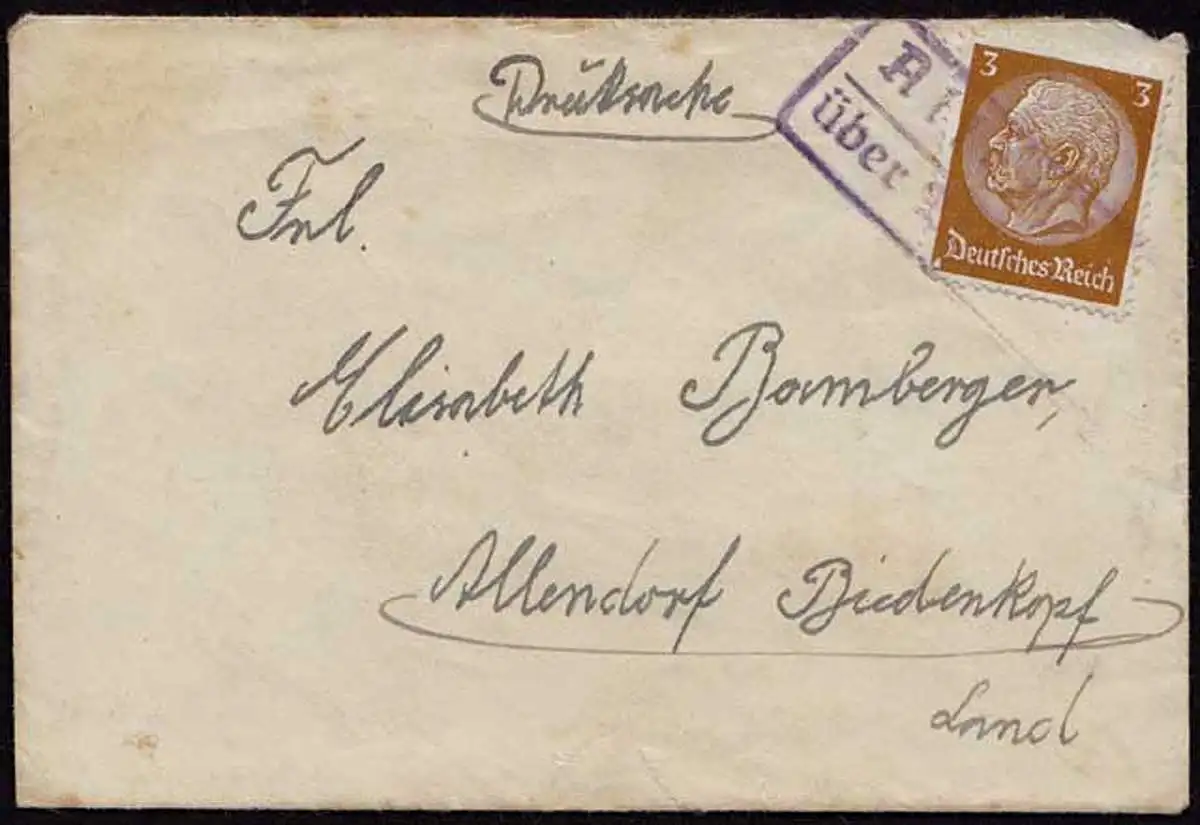 Drucksache
A
über
3 3
Deutsches Reich
Frl.
Elisabeth Bamberger,
Allendorf Biedenkopf
Land